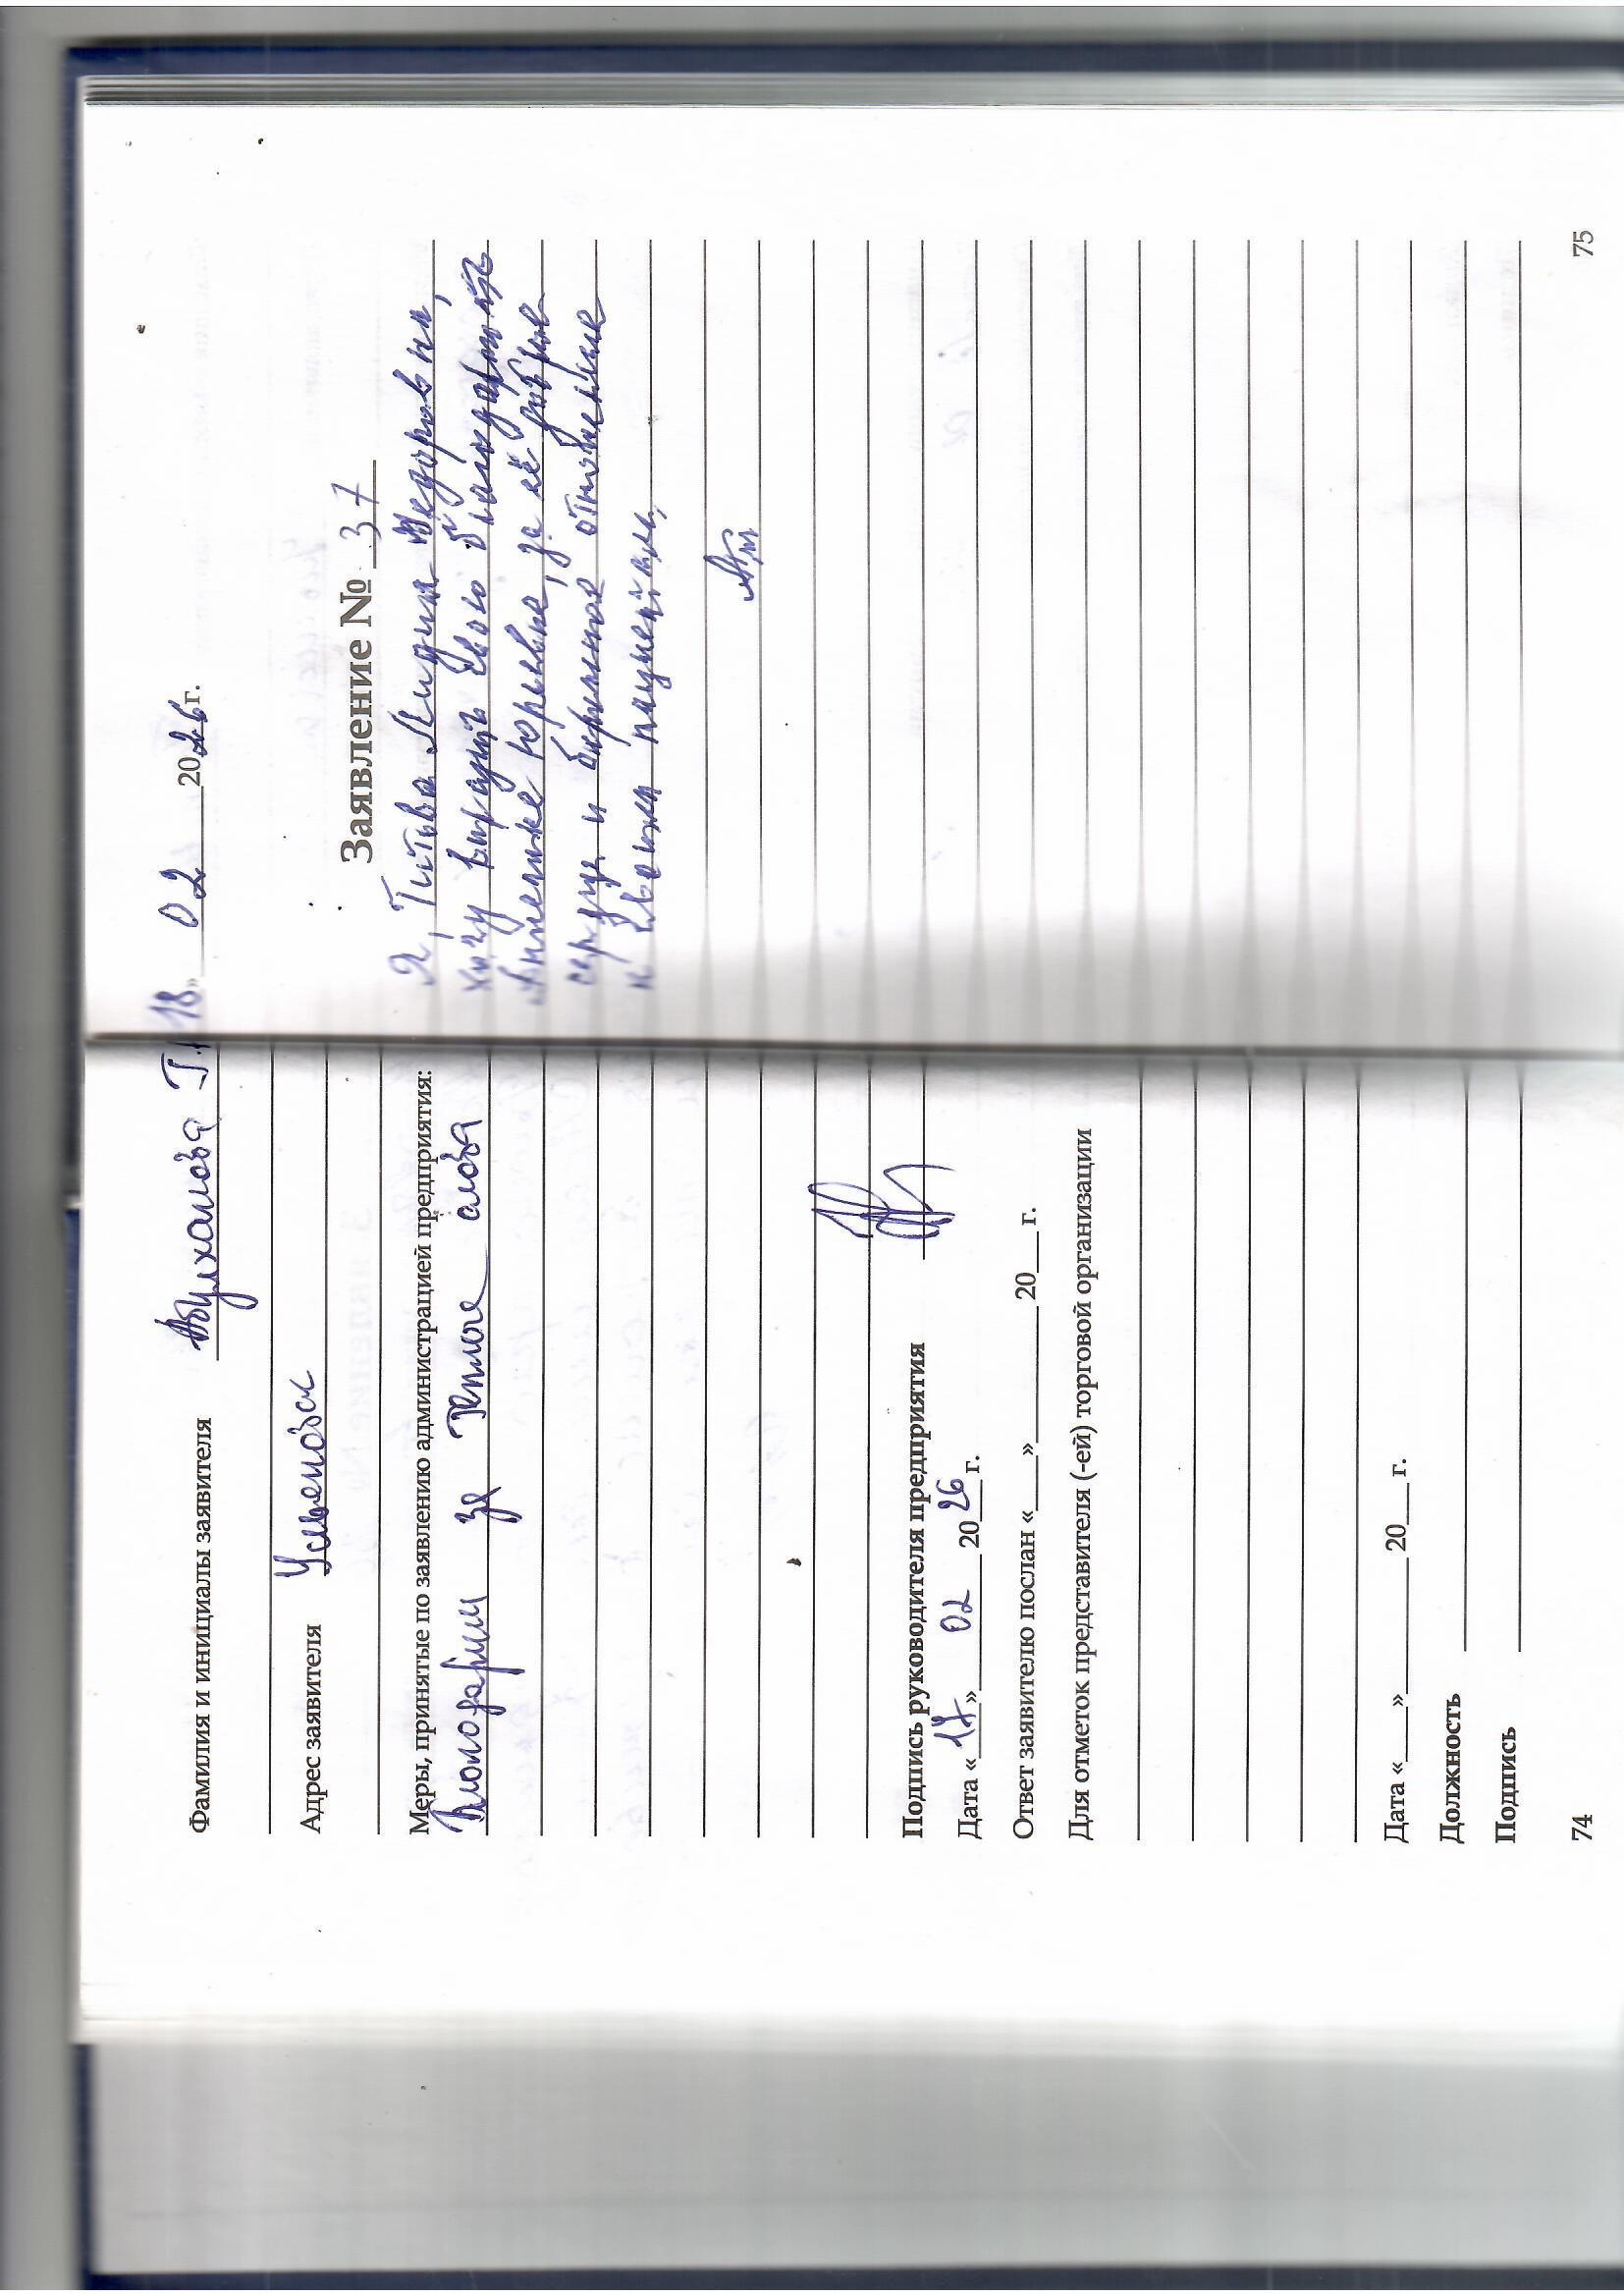 Фамилия и инициалы заявителя Абулханова Г.
Адрес заявителя Успеновск
Меры, принятые по заявлению администрацией предприятия:
Благодарим за теплые слова
Подпись руководителя предприятия
Дата «17» 02 2026 г.
Ответ заявителю послан «___» ______ 20__ г.
Для отметок представителя (-ей) торговой организации
Дата «___» ______ 20__ г.
Должность
Подпись
74
18» 02 2026 г.
Заявление № 37
Я, Титова Лидия Федоровна,
хочу выразить свою благодарность
Анжелике Юрьевне, за её доброе
сердце и бережное отношение
к своим пациентам.
75